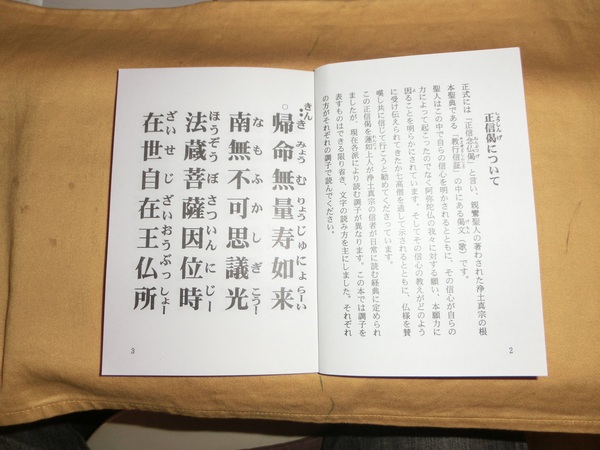 正信偈について
正式には「正信念仏偈」と言い、親鸞聖人の著わされた浄土真宗の根
本聖典である「教行信証」の中にある偈文（歌）です。
聖人はこの中で自らの信心を明かされるとともに、その信心が自らの
力によって起こったのでなく阿弥陀仏の我々に対する願い、本願力に
因ることを明らかにされています。そしてその信心の教えがどのよう
に受け伝えられてきたか七高僧を通して示されるとともに、仏様を賛
嘆し共に信じて行こうと勧めてくださっています。
この正信偈を蓮如上人が浄土真宗の信者が日常に読む経典に定められ
ましたが、現在各派により読む調子が異なります。この本では調子を
表すものはできる限り省き、文字の読み方を主にしました。それぞれ
の方がそれぞれの調子で読んでください。
2
帰命無量寿如来
南無不可思議光
法蔵菩薩因位時
在世自在王仏所
3